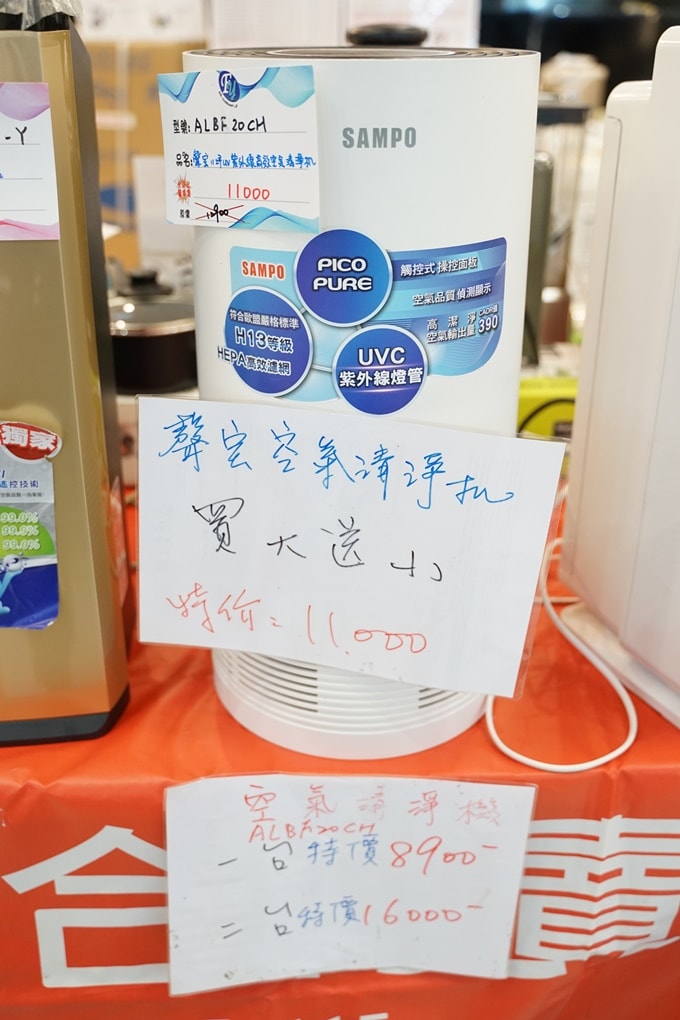 -Y
型號: ALBF20CH
11000
SAMPO
SAMPO
PICO
PURE
觸控式 操控面板
空氣品質 偵測顯示
高潔淨 CADR值
空氣輸出量 390
符合歐盟嚴格標準
H13等級
HEPA高效濾網
UVC
紫外線燈管
獨家
99.0%
99.9%
99.9%
聲宝空氣清淨机
買大送小
特价: 11.000
空氣清淨機
ALBF20CH
一台特價8900-
二台特價16000-
合 賣